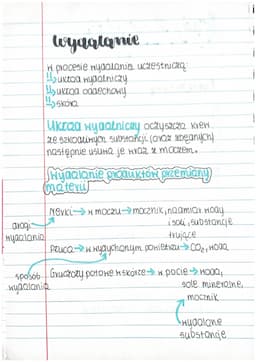 wydalanie
W procesie wydalania uczestniczą
↳ układ wydalniczy
↳ układ oddechowy
↳ skóra
Układ wydalniczy oczyszcza krew
ze szkodliwych substancji (oraz zbędnych)
następnie usuwa je wraz z moczem.
Wydalanie produktów przemiany
materii
Nerki → w moczu → mocznik, nadmiar wody
i soli, substancje
trujące
drogi
wydalania
Płuca → w wydychanym powietrzu → CO₂, woda
sposób
wydalania
Gruczoły potowe w skórze → w pocie → woda,
sole mineralne,
mocznik
wydalane
substancje